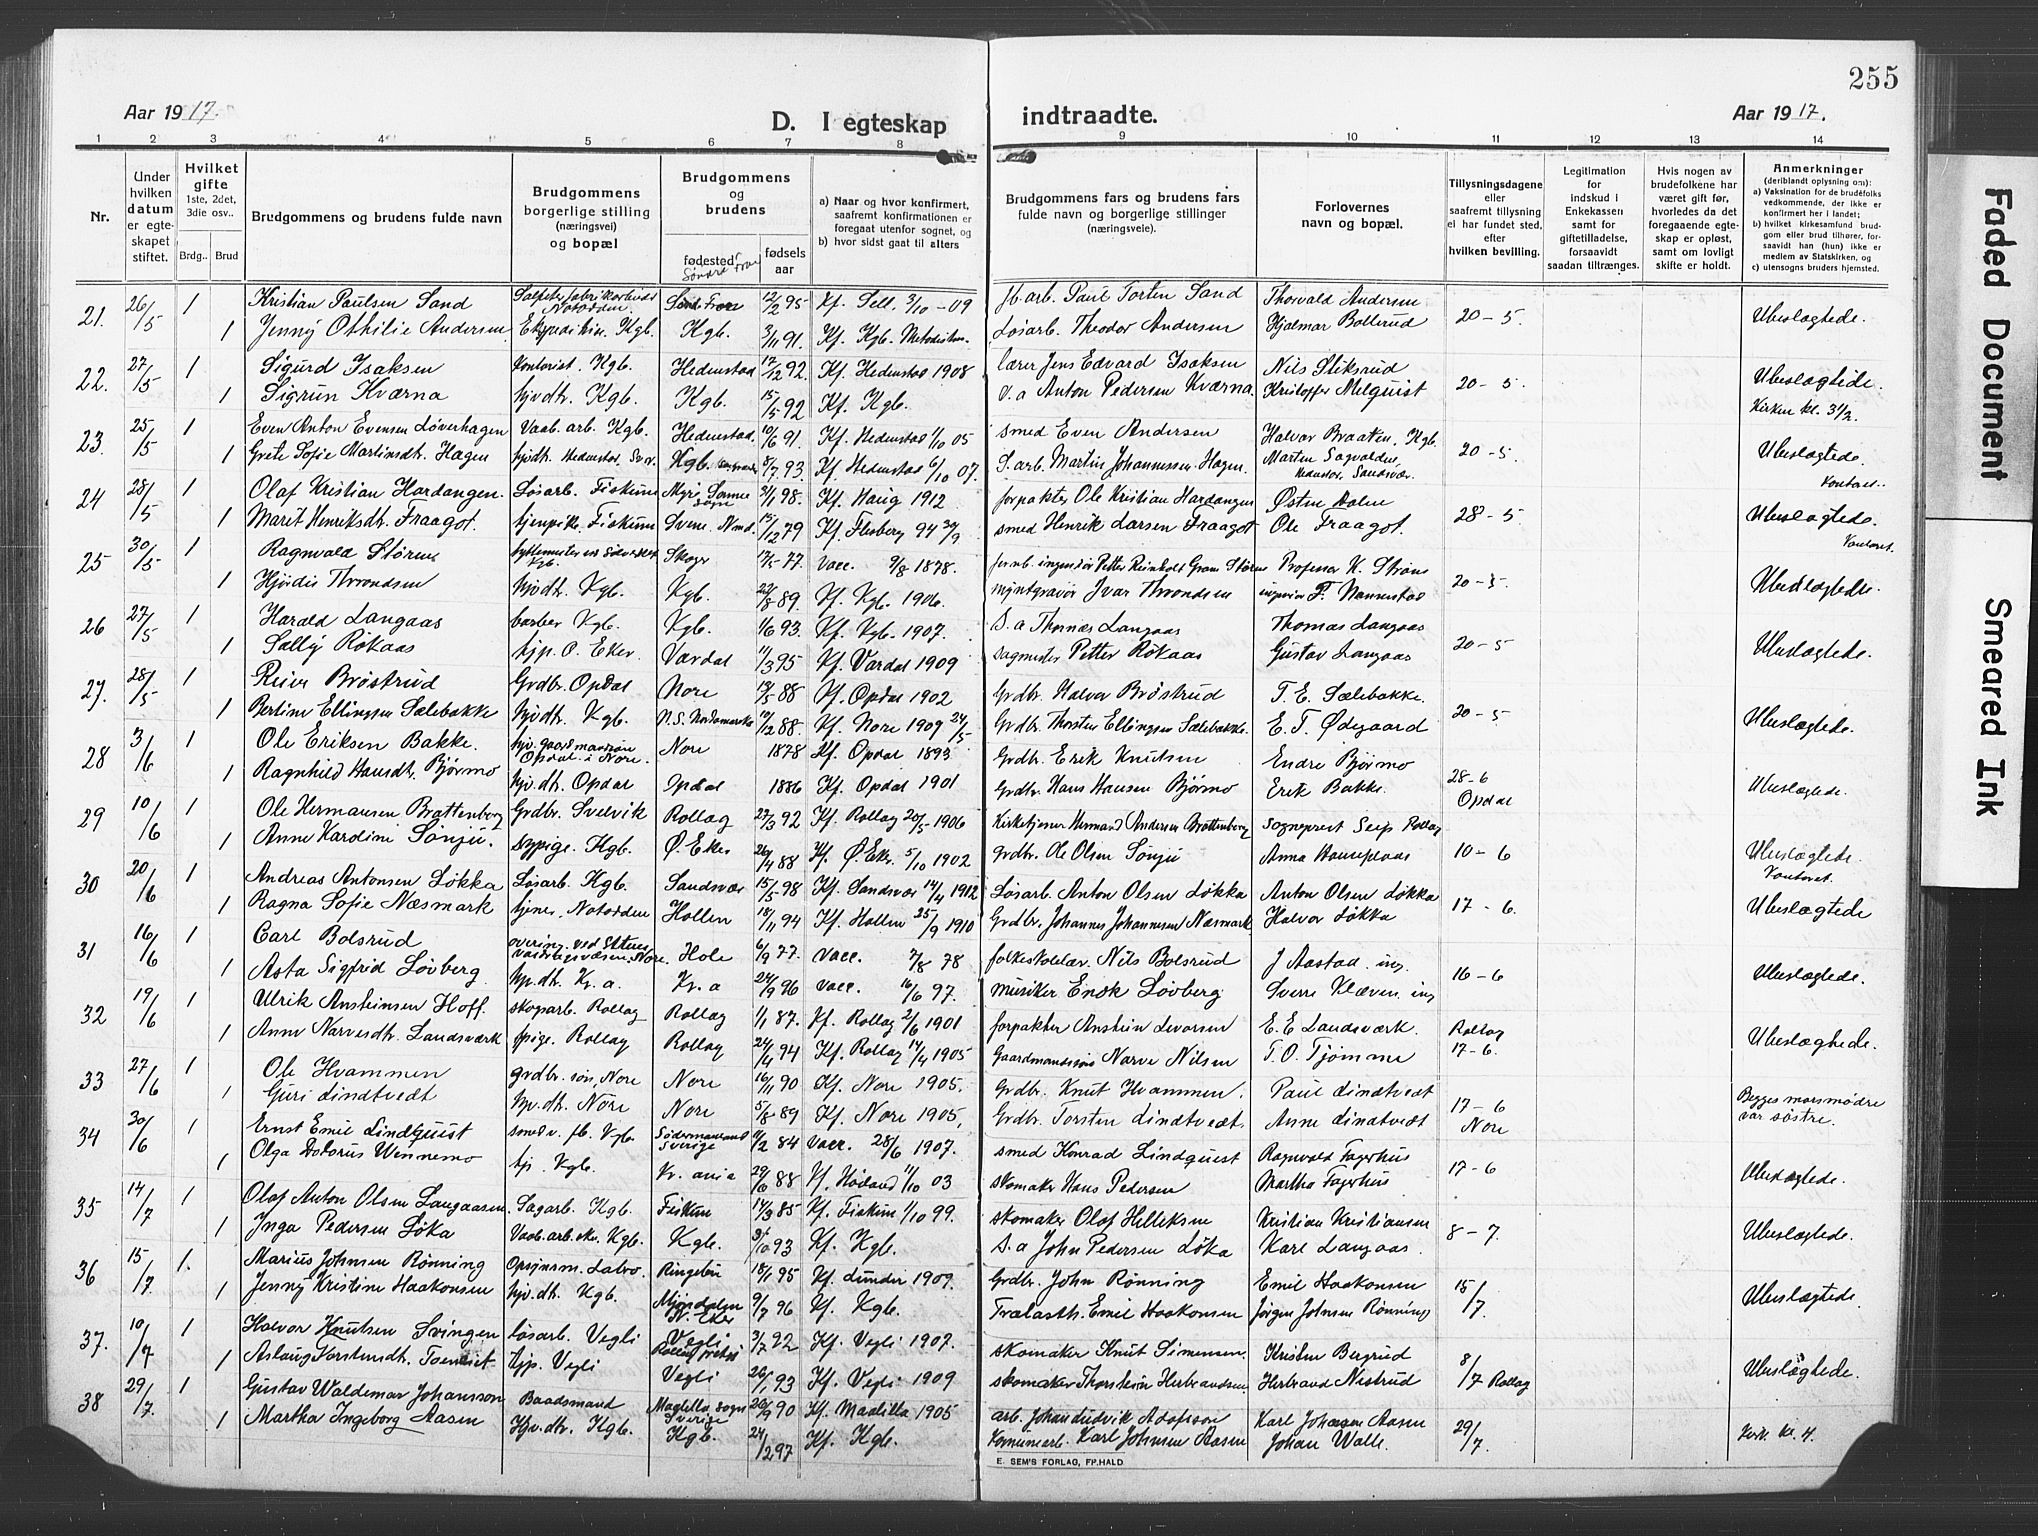 255
Aar 1917.
D. I egteskap
indtraadte.
Aar 1917.
1 2 3 4 5 6 7 8 9 10 11 12 13 14
Nr.
Under hvilken datum er egteskapet stiftet.
Hvilket gifte 1ste, 2det, 3die osv..
Brdg.. Brud
Brudgommens og brudens fulde navn
Brudgommens borgerlige stilling (næringsvei) og bopæl
Brudgommens og brudens
fødested fødselsaar
Søndre Fron
a) Naar og hvor konfirmert, saafremt konfirmationen er foregaat utenfor sognet, og
b) hvor sidst gaat til alters
Brudgommens fars og brudens fars fulde navn og borgerlige stillinger (næringsveie).
Forlovernes navn og bopæl.
Tillysningsdagene eller saafremt tillysning ei har fundet sted, efter hvilken bevilling.
Legitimation for indskud i Enkekassen samt for giftetilladelse, forsaavidt saadan tiltrænges.
Hvis nogen av brudefolkene har været gift før, hvorledes da det foregaaende egteskap er opløst, samt om lovligt skifte er holdt.
Anmerkninger (deriblandt oplysning om):
a) Vaksination for de brudefolks vedkommende, der ikke er konfirmert her i landet;
b) hvilket kirkesamfund brudgom eller brud tilhører, forsaavidt han (hun) ikke er medlem av Statskirken, og
c) utensogns bruders hjemsted.
21. 26/5 1 Kristian Paulsen Sand Notodden 12/2 95 Kf. Sell. 3/10 - 09 fb. arb. Paul Torten Sand Thorvald Andersen 20 - 5. Ubeslægtede.
1 Jenny Othilie Andersen Kgb. Kgb. 3/11 91. Kf. Kgb. Løsarb. Theodor Andersen Hjalmar Bollerud
22. 27/5 1 Sigurd Isaksen Kontorist. Kgb. Hedenstad 17/12 92. Kf. Hedenstad 1908 lærer Jens Edvard Isaksen Nils Stiksrud 20 - 5. Ubeslægtede.
1 Sigrun Kværna hjvdtr. Kgb. Kgb. 15/5 92 Kf. Kgb. Anton Pedersen Kværna. Kristoffer Melquist Kirken kl. 3½
23 25/5 1 Even Anton Evensen Løverhagen Vaab. arb. Kgb. Hedenstad. 10/6 91. Kf. Hedenstad 1/10 05 smed Even Andersen Halvor Braaten, Kgb. 20 - 5. Ubeslægtede.
1 Grete Sofie Martinsdt. Hagen hjvdtr. Hedenstad Kgb. 8/7 93. Kf. Hedenstad 6/10 07. S. arb. Martin Johannessen Hagen. Kontoret.
24 28/5 1 Olaf Kristian Hardangen. Løsarb. Fiskum 3/1 98. Kf. Haug 1912 forpakter Ole Kristian Hardangen Østen Holm 28 - 5 Ubeslægtede.
1 Marit Henriksdt. Fraagot. tjenpike. Fiskum 15/12 79 Kf. Flesberg 94 smed Henrik Larsen Fraagot Ole Fraagot. Kontoret.
25 30/5 1 Ragnvald Størens Kgb. Skoger 77. Vacc. 9/8 1878. Professor K. Strøm 20 - 5 Ubeslægtede.
1 Hjørdis Throndsen hjvdtr. Kgb. Kgb. 22/8 89. Kf. Kgb. 1906. myntgravør Ivar Throndsen
26 27/5 1 Harald Langaas barber Kgb. Kgb. 1/6 93. Kf. Kgb. 1907. S. a Thomas Langaas Thomas Langaas 20 - 5 Ubeslægtede.
1 Sally Rökaas hjp. Ø. Eker. Vardal 11/3 95 Kf. Vardal 1909 sagmester Petter Rökaas Gustav Langaas
27. 28/5 1 Reier Bröstrud Grdbr. Opdal Nore 88 Kf. Opdal 1902 Grdbr. Halvor Bröstrud T. E. Sælebakke 20 - 5 Ubeslægtede.
1 Berline Ellingsen Sælebakke hjvdtr. Kgb. 88. Kf. Nore 1907 24/5 Grdbr. Thorsten Ellingsen Sælebakke. E. T. Ødegaard
28 3/6 1 Ole Eriksen Bakke. hjv. gaardmandssøn Opdal i Nore. Nore 1878 Kf. Opdal 1893 Grdbr. Erik Knutsen Endre Bjørmo 28 - 6 Opdal Ubeslægtede.
1 Ragnhild Hansdt. Bjørmo hjv. dtr. Opdal Opdal 1886 Kf. Opdal 1901 Grdbr. Hans Hansen Bjørmo Erik Bakke.
29 10/6 1 Ole Hermansen Brattenborg Grdbr. Svelvik Rollag 27/3 92 Kf. Rollag 20/5 1906 Kirketjener Herman Andersen Brattenborg Sogneprest Seip Rollag 10 - 6 Ubeslægtede.
1 Anne Karoline Sönju. sypige. Kgb. Ø. Eker 26/4 88 Kf. Ø. Eker. 5/10 1902 Grdbr. Ole Olsen Sönju Anna Kontoret.
30 20/6 1 Andreas Antonsen Løkka Løsarb. Kgb. Sandsvær 15/5 98 Kf. Sandsvær 14/4 1912 Løsarb. Anton Olsen Løkka Anton Olsen Løkka 17 - 6. Ubeslægtede
1 Ragna Sofie Næsmark tjenes. Notodden Hollen 18/11 94 Kf. Hollen 25/9 1910 Grdbr. Johannes Johannesen Næsmark. Halvor Løkka
31 16/6 1 Carl Bolsrud Hole 6/9 77. Vacc. 7/8 78 folkeskolelær. Nils Bolsrud J Aastad. ing. 16 - 6 Ubeslægtede.
1 Asta Sigfrid Lövberg hjv. dtr. Kr. a. Kr. a 24/9 96 Vacc. 16/6 97. musiker Lövberg Sverre Klæven. ing
32 19/6 1 Ulrik Ansteinsen Hoff. skogarb. Rollag Rollag 1/1 87. Kf. Rollag 2/6 1901 forpakter Anstein Levorsen E. E Landsværk. Rollag 17 - 6. Ubeslægtede.
1 Anne Narvesdtr. Landsværk tpige. Rollag Rollag 24/4 94 Kf. Rollag 14/4 1905 Gaardmandssøn Narve Nilsen T. O. Tjømme
33 27/6 1 Ole Hvammen grdbr. søn, Nore Nore 16/11 90 Kf. Nore 1905. Grdbr. Knut Hvammen. Paul Lindtvedt 17 - 6 Nore Begges morsmødre var søstre.
1 Guri Lindtvedt hjv. dtr. Nore Nore 5/8 89 Kf. Nore 1905, Grdbr. Torsten Lindtvedt. Anne Lindtvedt
34 30/6 1 Ernst Emil Lindquist smed v. fb. Kgb. Södermanland Sverige 84 Vacc. 28/6 1907. smed Konrad Lindquist Ragnvald Fagerhus 17 - 6 Ubeslægtede.
1 Olga Dotorus Wennemo hj. Kgb. Kr. ania 88 Kf. Höland 11/10 03 skomaker Hans Pedersen Martha Fagerhus
35 14/7 1 Olaf Anton Olsen Langaasen Sagarb. Kgb. Fiskum 14/3 85 Kf. Fiskum 1/10 99. skomaker Olaf Helleksen Kristian Kristiansen 8 - 7. Ubeslægtede.
1 Inga Pedersen Løka Vaab. arb. Kgb. Kgb. 93 Kf. Kgb. S. a John Pedersen Løka Karl Langaas.
36 15/7 1. Marius Johnsen Rønning Opsynsm. Labro. Ringebu 18/1 95 Kf. Lunder 1909. Grdbr. John Rønning Emil Haakonsen 15/7 Ubeslægtede.
1 Jenny Kristine Haakonsen hjv. dtr. Kgb. Mjøndalen N. Eker 9/7 96 Kf. Kgb. Trælasth. Emil Haakonsen Jørgen Johnsen Rønning
37. 10/7 1 Halvor Knutsen Svingen løsarb. Vegli Vegli 3/7 92 Kf. Vegli 1907. skomaker Knut Simensen. Kristen Bergrud 8/7 Rollag Ubeslægtede.
1 Aslaug Torstensdt. hjp. Vegli Vegli 26/1 93 Kf. Vegli 1909 skomaker Thorstein Herbrandsen Herbrand Nestrud
38 29/7. 1 Gustav Waldemar Johansson Baadsmand Sverige 26/9 90 Kf. Maalilla 1905 arb. Johan Ludvik Adolfsson Karl Johansen Aasen 29/7. Kirk. kl. 4.
1 Martha Ingeborg Aasen Hjv. dtr. Kgb. Kgb. 24/2 97 Kf. Kgb. Karl Johnsen Aasen Johan Walle.
E. SEM'S FORLAG, FR.HALD
Faded Document
Smeared Ink